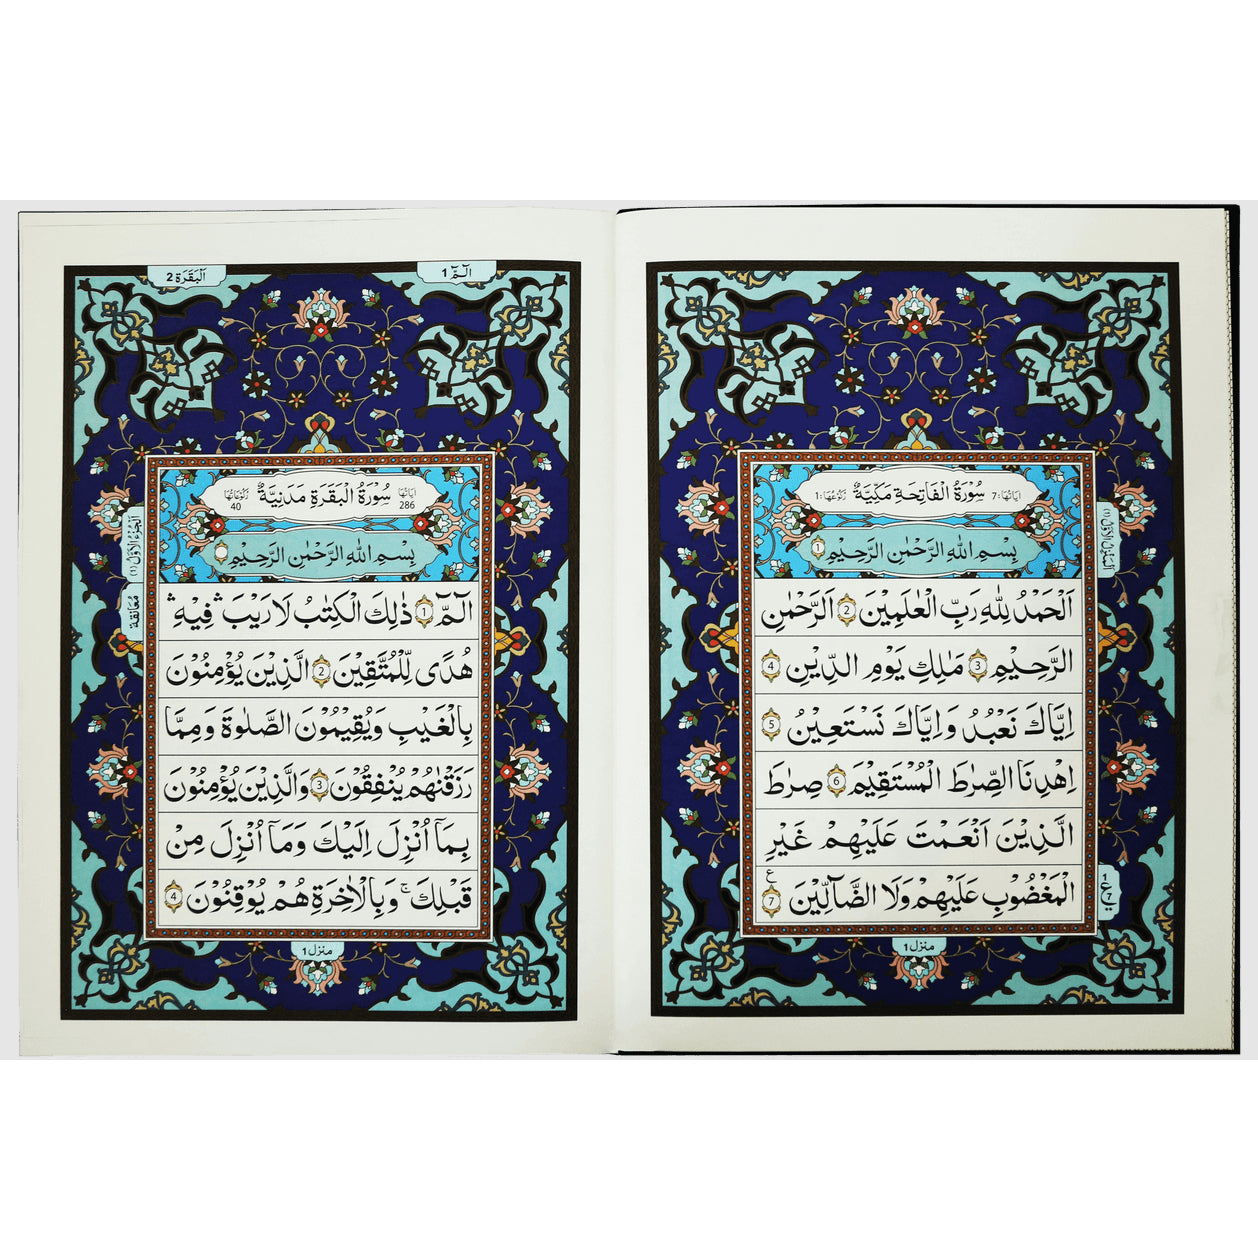 سُوْرَةُ الْفَاتِحَةِ مَكِّيَّةٌ
اٰيَاتُهَا: 7
رُكُوْعُهَا: 1
بِسْمِ اللّٰهِ الرَّحْمٰنِ الرَّحِيْمِ 1
اَلْحَمْدُ لِلّٰهِ رَبِّ الْعٰلَمِيْنَ 2 الرَّحْمٰنِ
الرَّحِيْمِ 3 مٰلِكِ يَوْمِ الدِّيْنِ 4
اِيَّاكَ نَعْبُدُ وَاِيَّاكَ نَسْتَعِيْنُ 5
اِهْدِنَا الصِّرٰطَ الْمُسْتَقِيْمَ 6 صِرٰطَ
الَّذِيْنَ اَنْعَمْتَ عَلَيْهِمْ غَيْرِ
الْمَغْضُوْبِ عَلَيْهِمْ وَلَا الضَّآلِّيْنَ 7 ع
1 ع 7
منزل 1
الٓمّٓ 1
اَلْبَقَرَة 2
سُوْرَةُ الْبَقَرَةِ مَدَنِيَّةٌ
اٰيَاتُهَا 286
رُكُوْعَاتُهَا 40
بِسْمِ اللّٰهِ الرَّحْمٰنِ الرَّحِيْمِ
الٓمّٓ 1 ذٰلِكَ الْكِتٰبُ لَا رَيْبَ ۛ فِيْهِ ۛ
هُدًى لِّلْمُتَّقِيْنَ 2 الَّذِيْنَ يُؤْمِنُوْنَ
بِالْغَيْبِ وَيُقِيْمُوْنَ الصَّلٰوةَ وَمِمَّا
رَزَقْنٰهُمْ يُنْفِقُوْنَ 3 وَالَّذِيْنَ يُؤْمِنُوْنَ
بِمَآ اُنْزِلَ اِلَيْكَ وَمَآ اُنْزِلَ مِنْ
قَبْلِكَ ۚ وَبِالْاٰخِرَةِ هُمْ يُوْقِنُوْنَ 4
اَلْجُزْءُ الْاَوَّلُ (1)
مُعَانَقَة
منزل 1